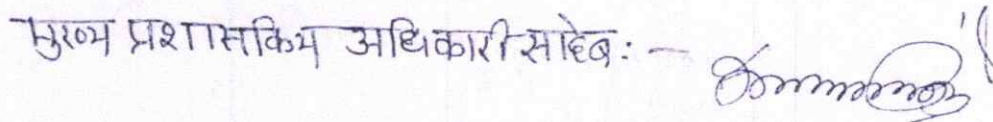 मुख्य प्रशासकिय अधिकारी साहेब :-